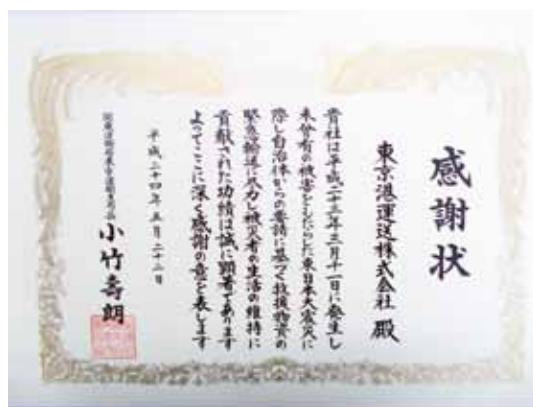 感謝状
東京港運送株式会社 殿
貴社は平成二十三年三月十一日に発生し
未曾有の被害をもたらした東日本大震災に
際し自治体からの要請に基づく救援物資の
緊急輸送に尽力し被災者の生活の維持に
貢献された功績は誠に顕著であります
よってここに深く感謝の意を表します
平成二十四年五月二十二日
関東運輸局東京運輸支局長 小竹壽朗